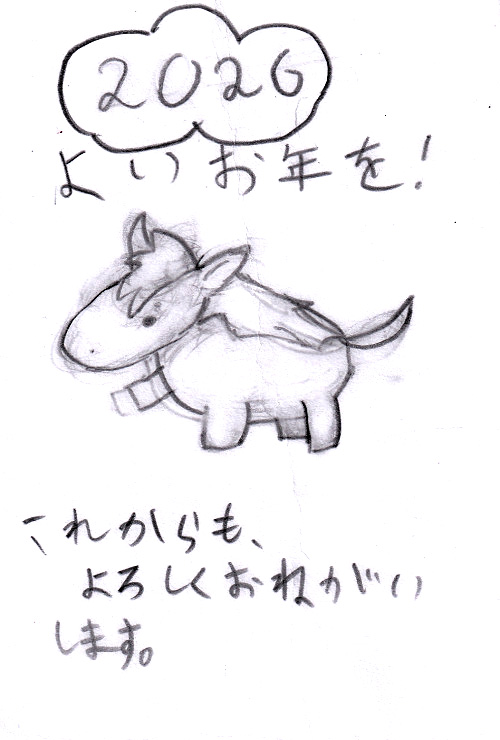 2026
よいお年を!
これからも、
よろしくおねがい
します。